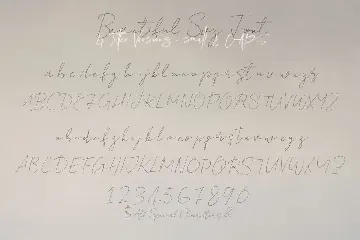 Beautiful Spy Font
a b c d e f g h i j k l m n o p q r s t u v w x y z
ABCDEFGHIJKLMNOPQRSTUVWXYZ
a b c d e f g h i j k l m n o p q r s t u v w x y z
ABCDEFGHIJKLMNOPQRSTUVWXYZ
1234567890